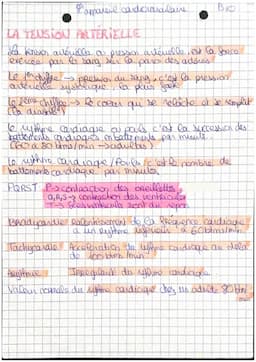 L'appareil cardiovasculaire Bio
LA TENSION ARTÉRIELLE
La tension artérielle ou pression artérielle, est la force
exercée par le sang sur la paroi des artères
Le 1er chiffre → pression du sang, c'est la pression
artérielle systolique, la plus
Le 2ème chiffre → le coeur qui se relâche et se remplit
(La diastole)
Le rythme cardiaque ou pouls c'est la succession des
battements cardiaques en battements par minute.
(60 à 80 btms/min → adultes)
Le rythme cardiaque / Pouls, c'est le nombre de
battements cardiaque par minutes.
PQRST P → contraction des oreillettes
Q,R,S → contraction des ventricules
T →
Bradycardie Ralentissement de la fréquence cardiaque
à un rythme inférieur à 60 btms/min.
Tachycardie Accélération du rythme cardiaque au delà
de 100 btms/min
Arythmie Irrégularité du rythme cardiaque
Valeur normale du rythme cardiaque chez un adulte 80